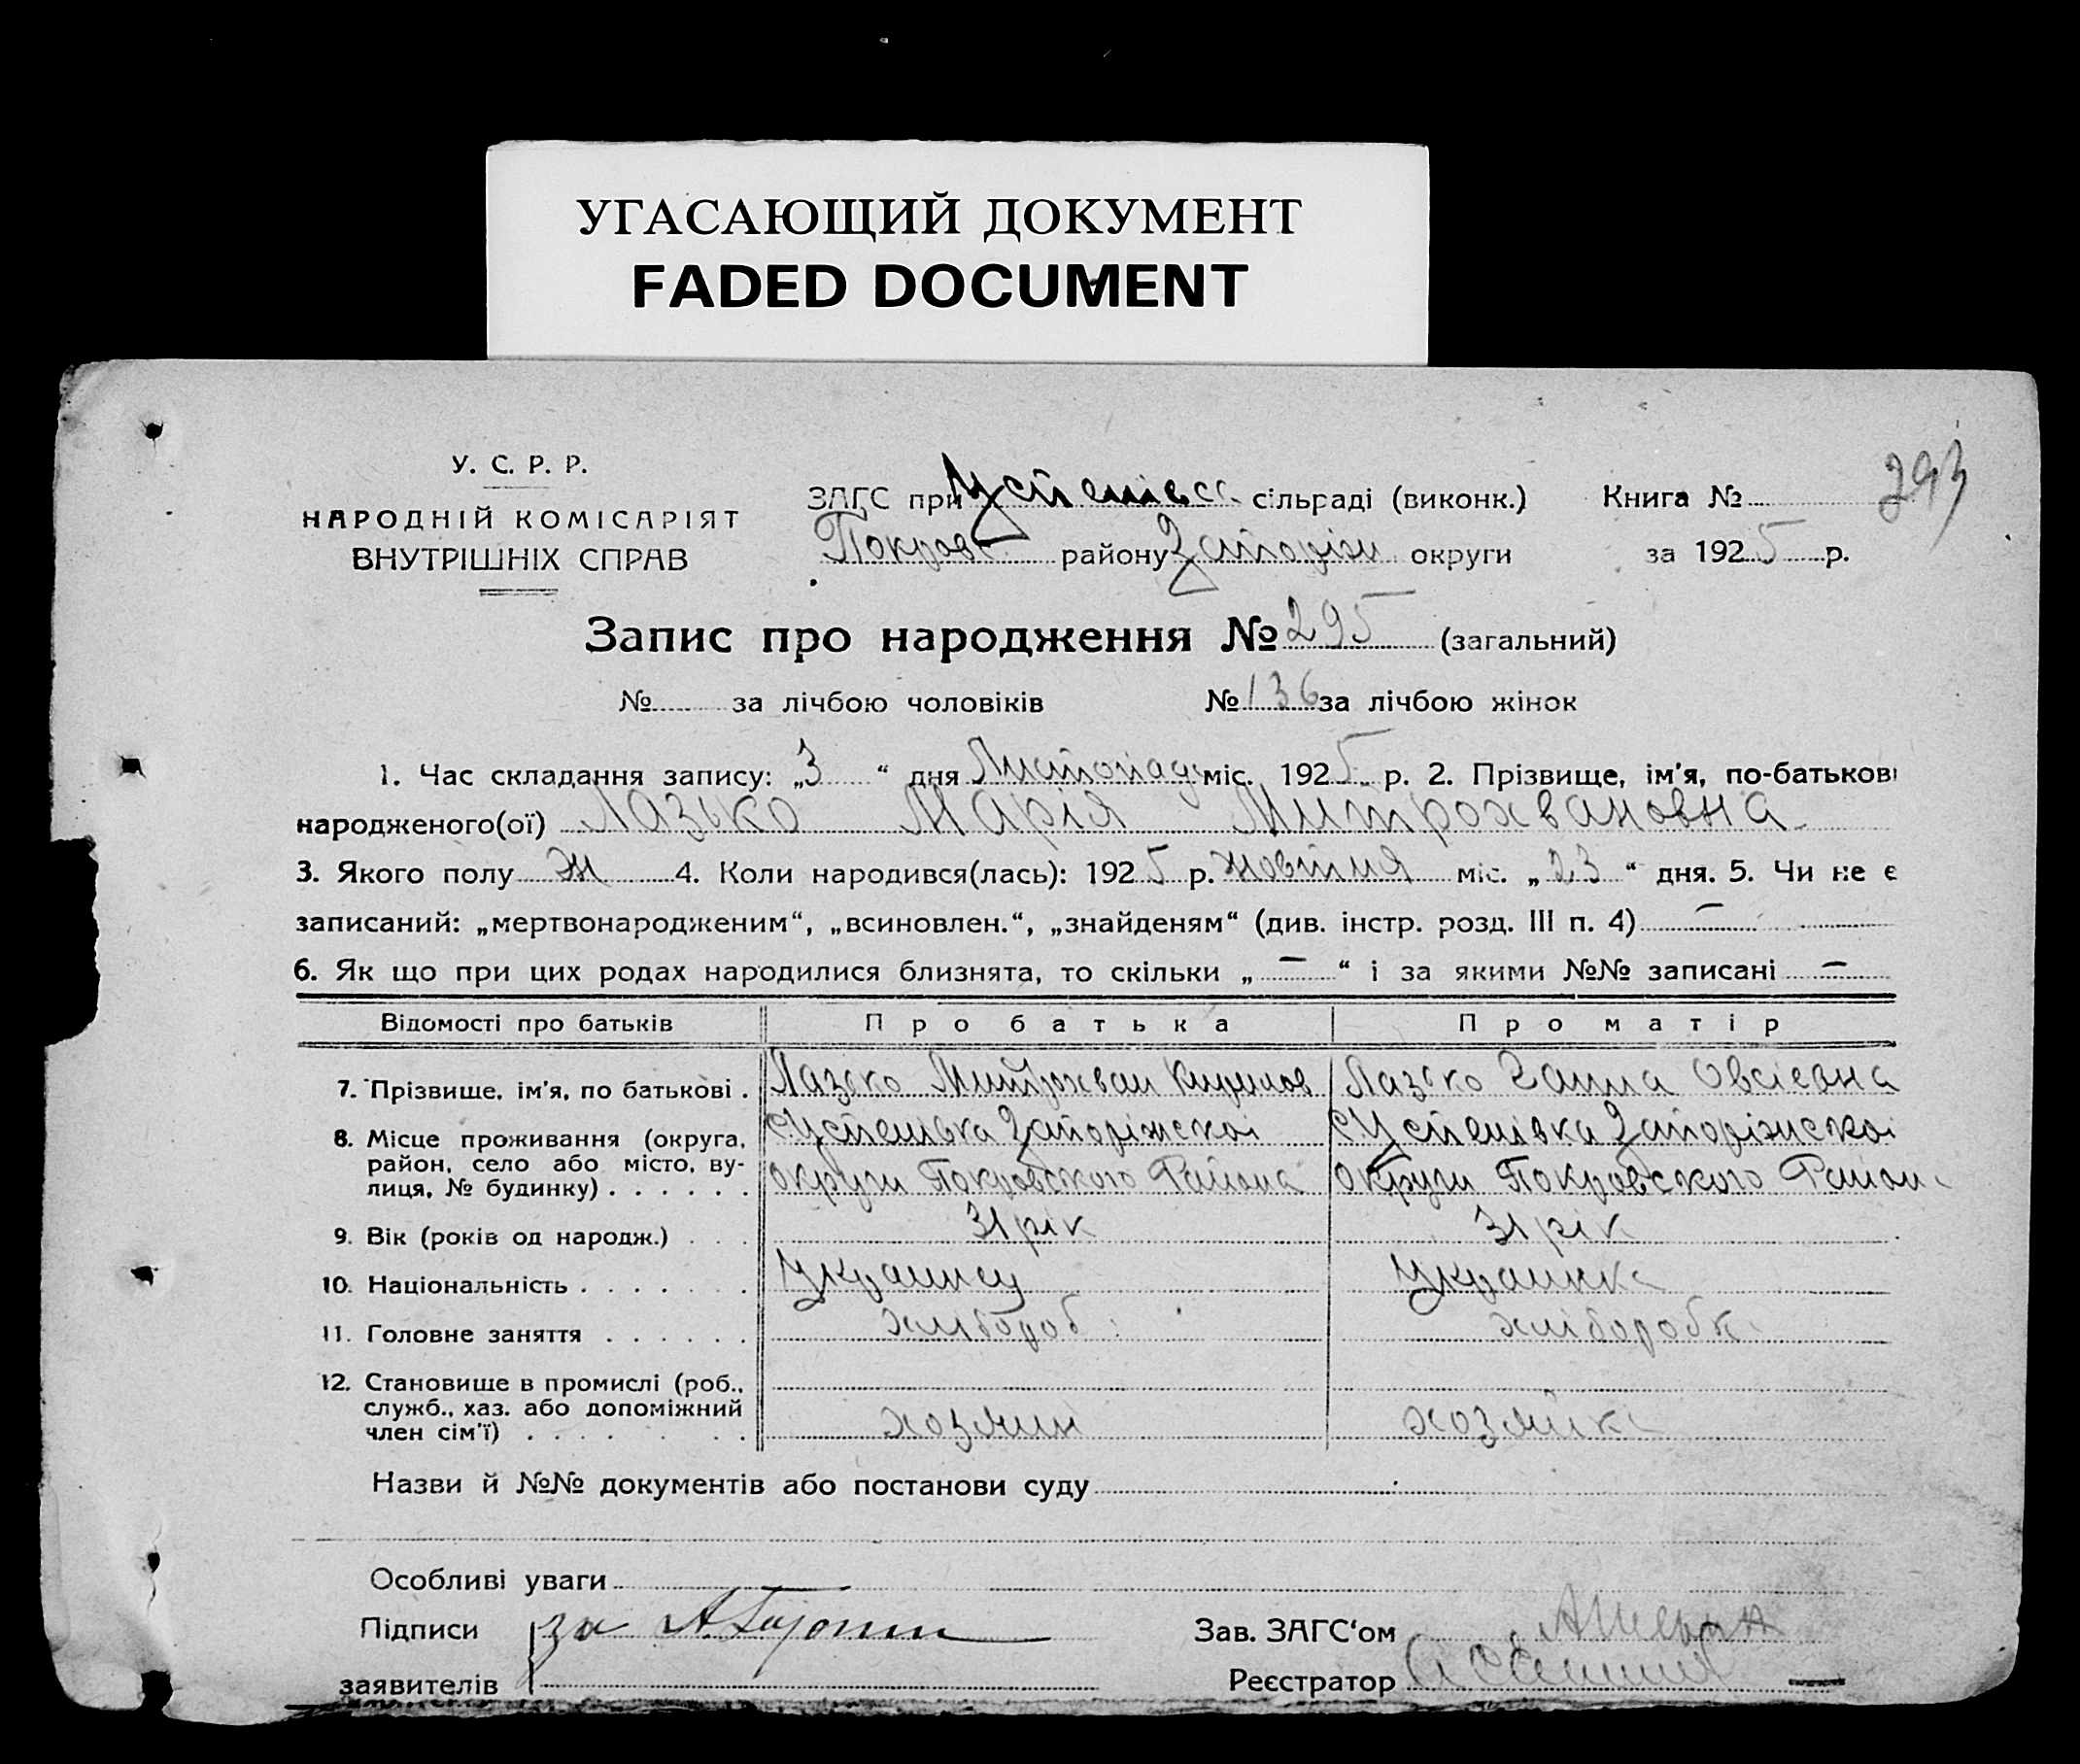 УГАСАЮЩИЙ ДОКУМЕНТ
FADED DOCUMENT
293
У. С. Р. Р.
НАРОДНІЙ КОМІСАРІЯТ
ВНУТРІШНІХ СПРАВ
ЗАГС при Успенівс сільраді (виконк.) Книга №
Покровс району Запоріж округи за 1925 р.
Запис про народження № 295 (загальний)
№ за лічбою чоловіків № 136 за лічбою жінок
1. Час складання запису: „3“ дня Листопада міс. 1925 р. 2. Прізвище, ім'я, по-батькові
народженого(ої) Лазько Марія Митрохвановна
3. Якого полу ж 4. Коли народився(лась): 1925 р. жовтня міс. „23“ дня. 5. Чи не є
записаний: „мертвонародженим“, „всиновлен.“, „знайденям“ (див. інстр. розд. III п. 4) —
6. Як що при цих родах народилися близнята, то скільки „—“ і за якими №№ записані —
Відомості про батьків Про батька Про матір
7. Прізвище, ім'я, по батькові . Лазько Митрохван Кирилов Лазько Ганна Овсієвна
8. Місце проживання (округа, район, село або місто, вулиця, № будинку) . . . . . .
с Успенівка Запоріжскоі с Успенівка Запоріжскоі
округи Покровского Района округи Покровского Район
9. Вік (років од народж.) . . . 31 рік 31 рік
10. Національність . . . . . . . Украинец Украинка
11. Головне заняття . . . . . . хлібороб хліборобка
12. Становище в промислі (роб., служб., хаз. або допоміжний член сім'ї) . . . . . . .
хозяин хозяйка
Назви й №№ документів або постанови суду
Особливі уваги
Підписи за А. Зав. ЗАГС‘ом
заявителів Реєстратор